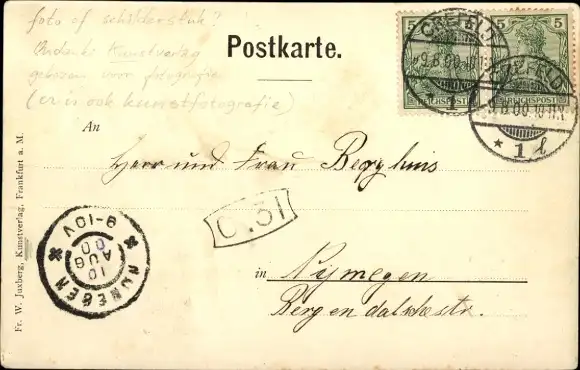 foto of schilderstuk?
Ondanks Kunstverlag
gekozen voor fotografie
(er is ook kunstfotografie)
Postkarte.
5
5
REICHSPOST
REICHSPOST
CREFELD
9.8.00
* 1 l
CREFELD
9.8.00
* 1 l
An
Herr und Frau Berghuis
C.31
in Nijmegen
Bergendalschestr.
NIJMEGEN
10 AUG 00
9-10V
Fr. W. Juxberg, Kunstverlag, Frankfurt a. M.